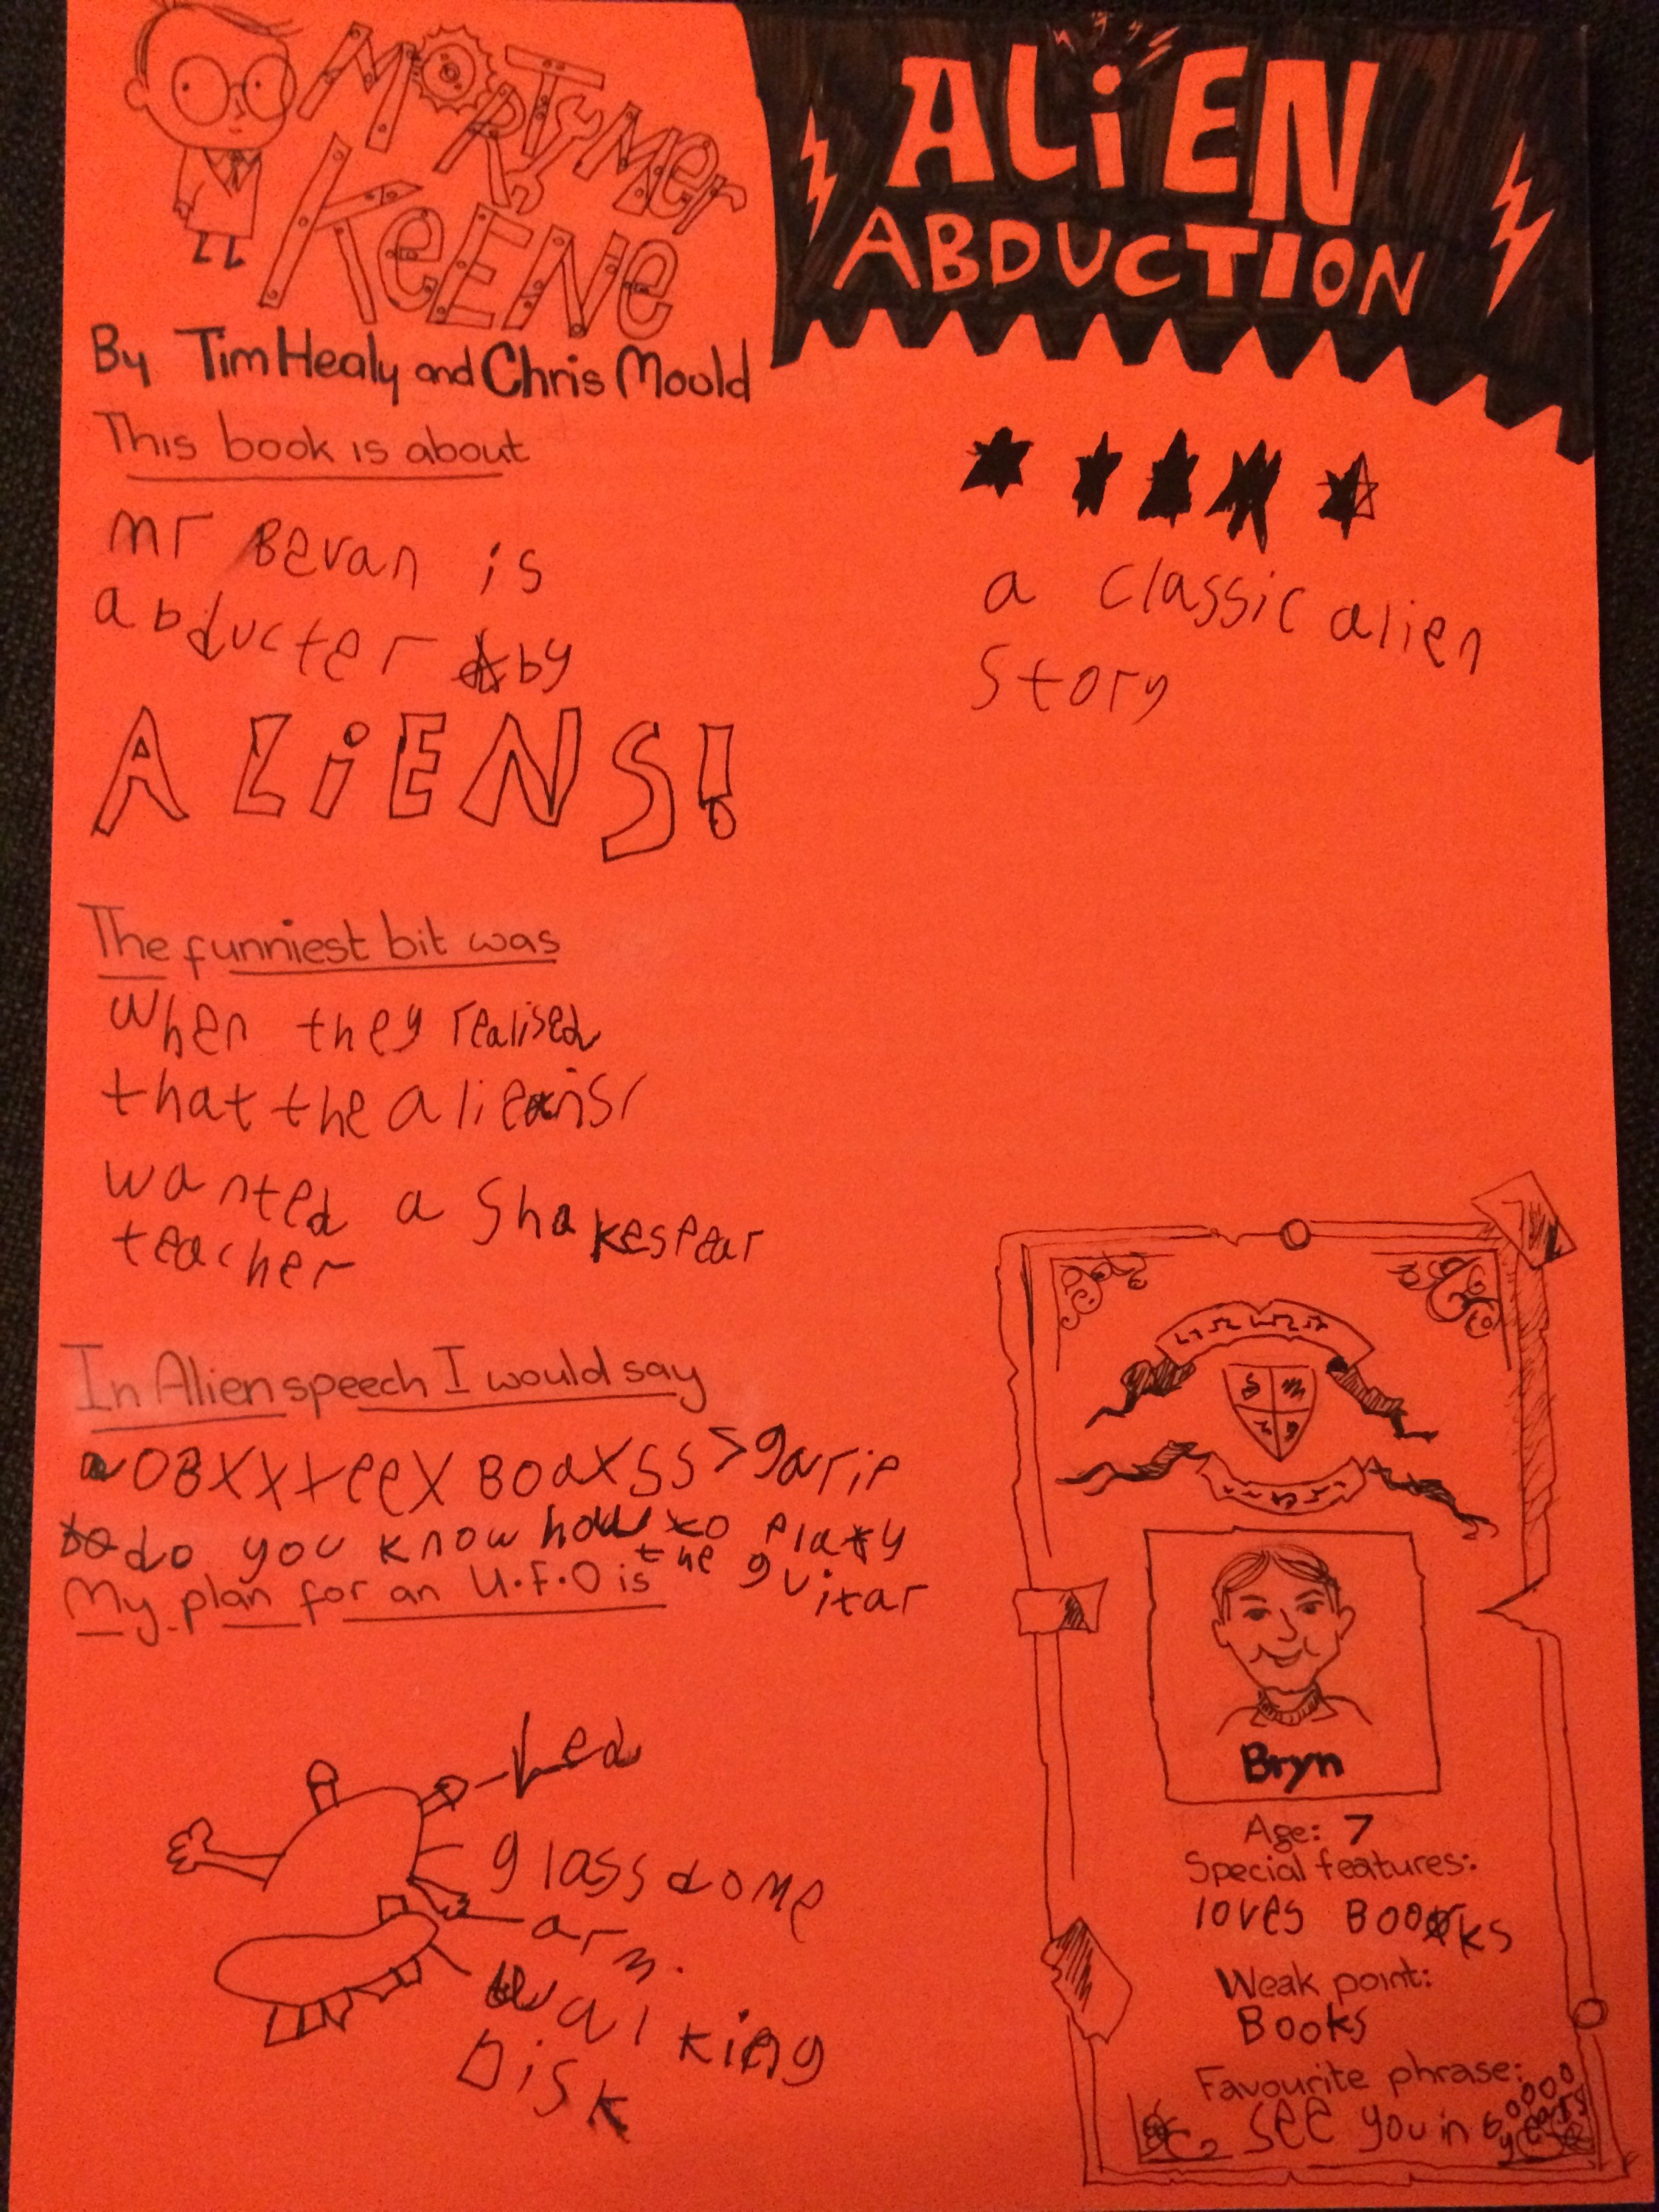 MORTYMer
KeENe
ALiEN
ABDUCTION
By Tim Healy and Chris Mould
This book is about
mr Bevan is
abducter by
ALiENS!
a classic alien
story
The funniest bit was
when they realised
that the aliens
wanted a Shakespear
teacher
In Alien speech I would say
OBXXteeX BOaXSS garie
do you know how to play
the guitar
My plan for an U.F.O is
Led
glass dome
arm.
walking
Disk
Bryn
Age: 7
Special features:
loves Books
Weak point:
Books
Favourite phrase:
see you in 60000
years